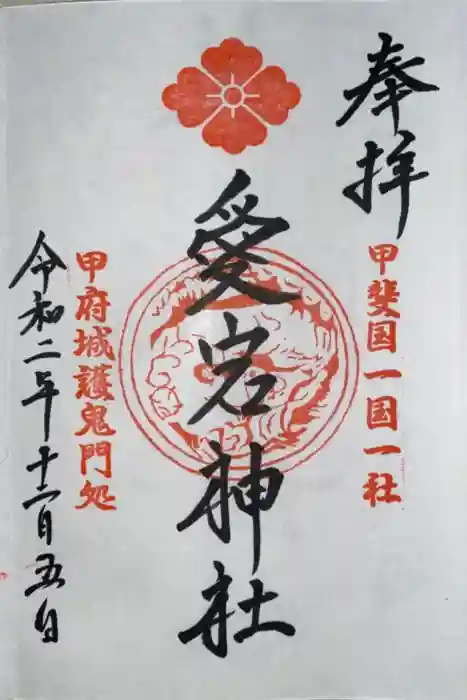 奉拝
甲斐国一国一社
愛宕神社
甲府城護鬼門処
令和二年十二月五日